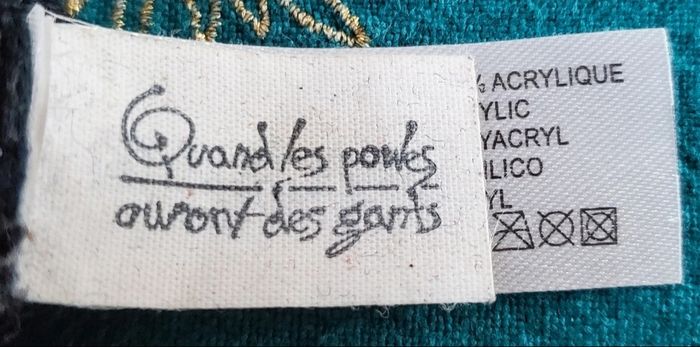 Quand les poules
auront des gants
% ACRYLIQUE
YLIC
YACRYL
ILICO
YL